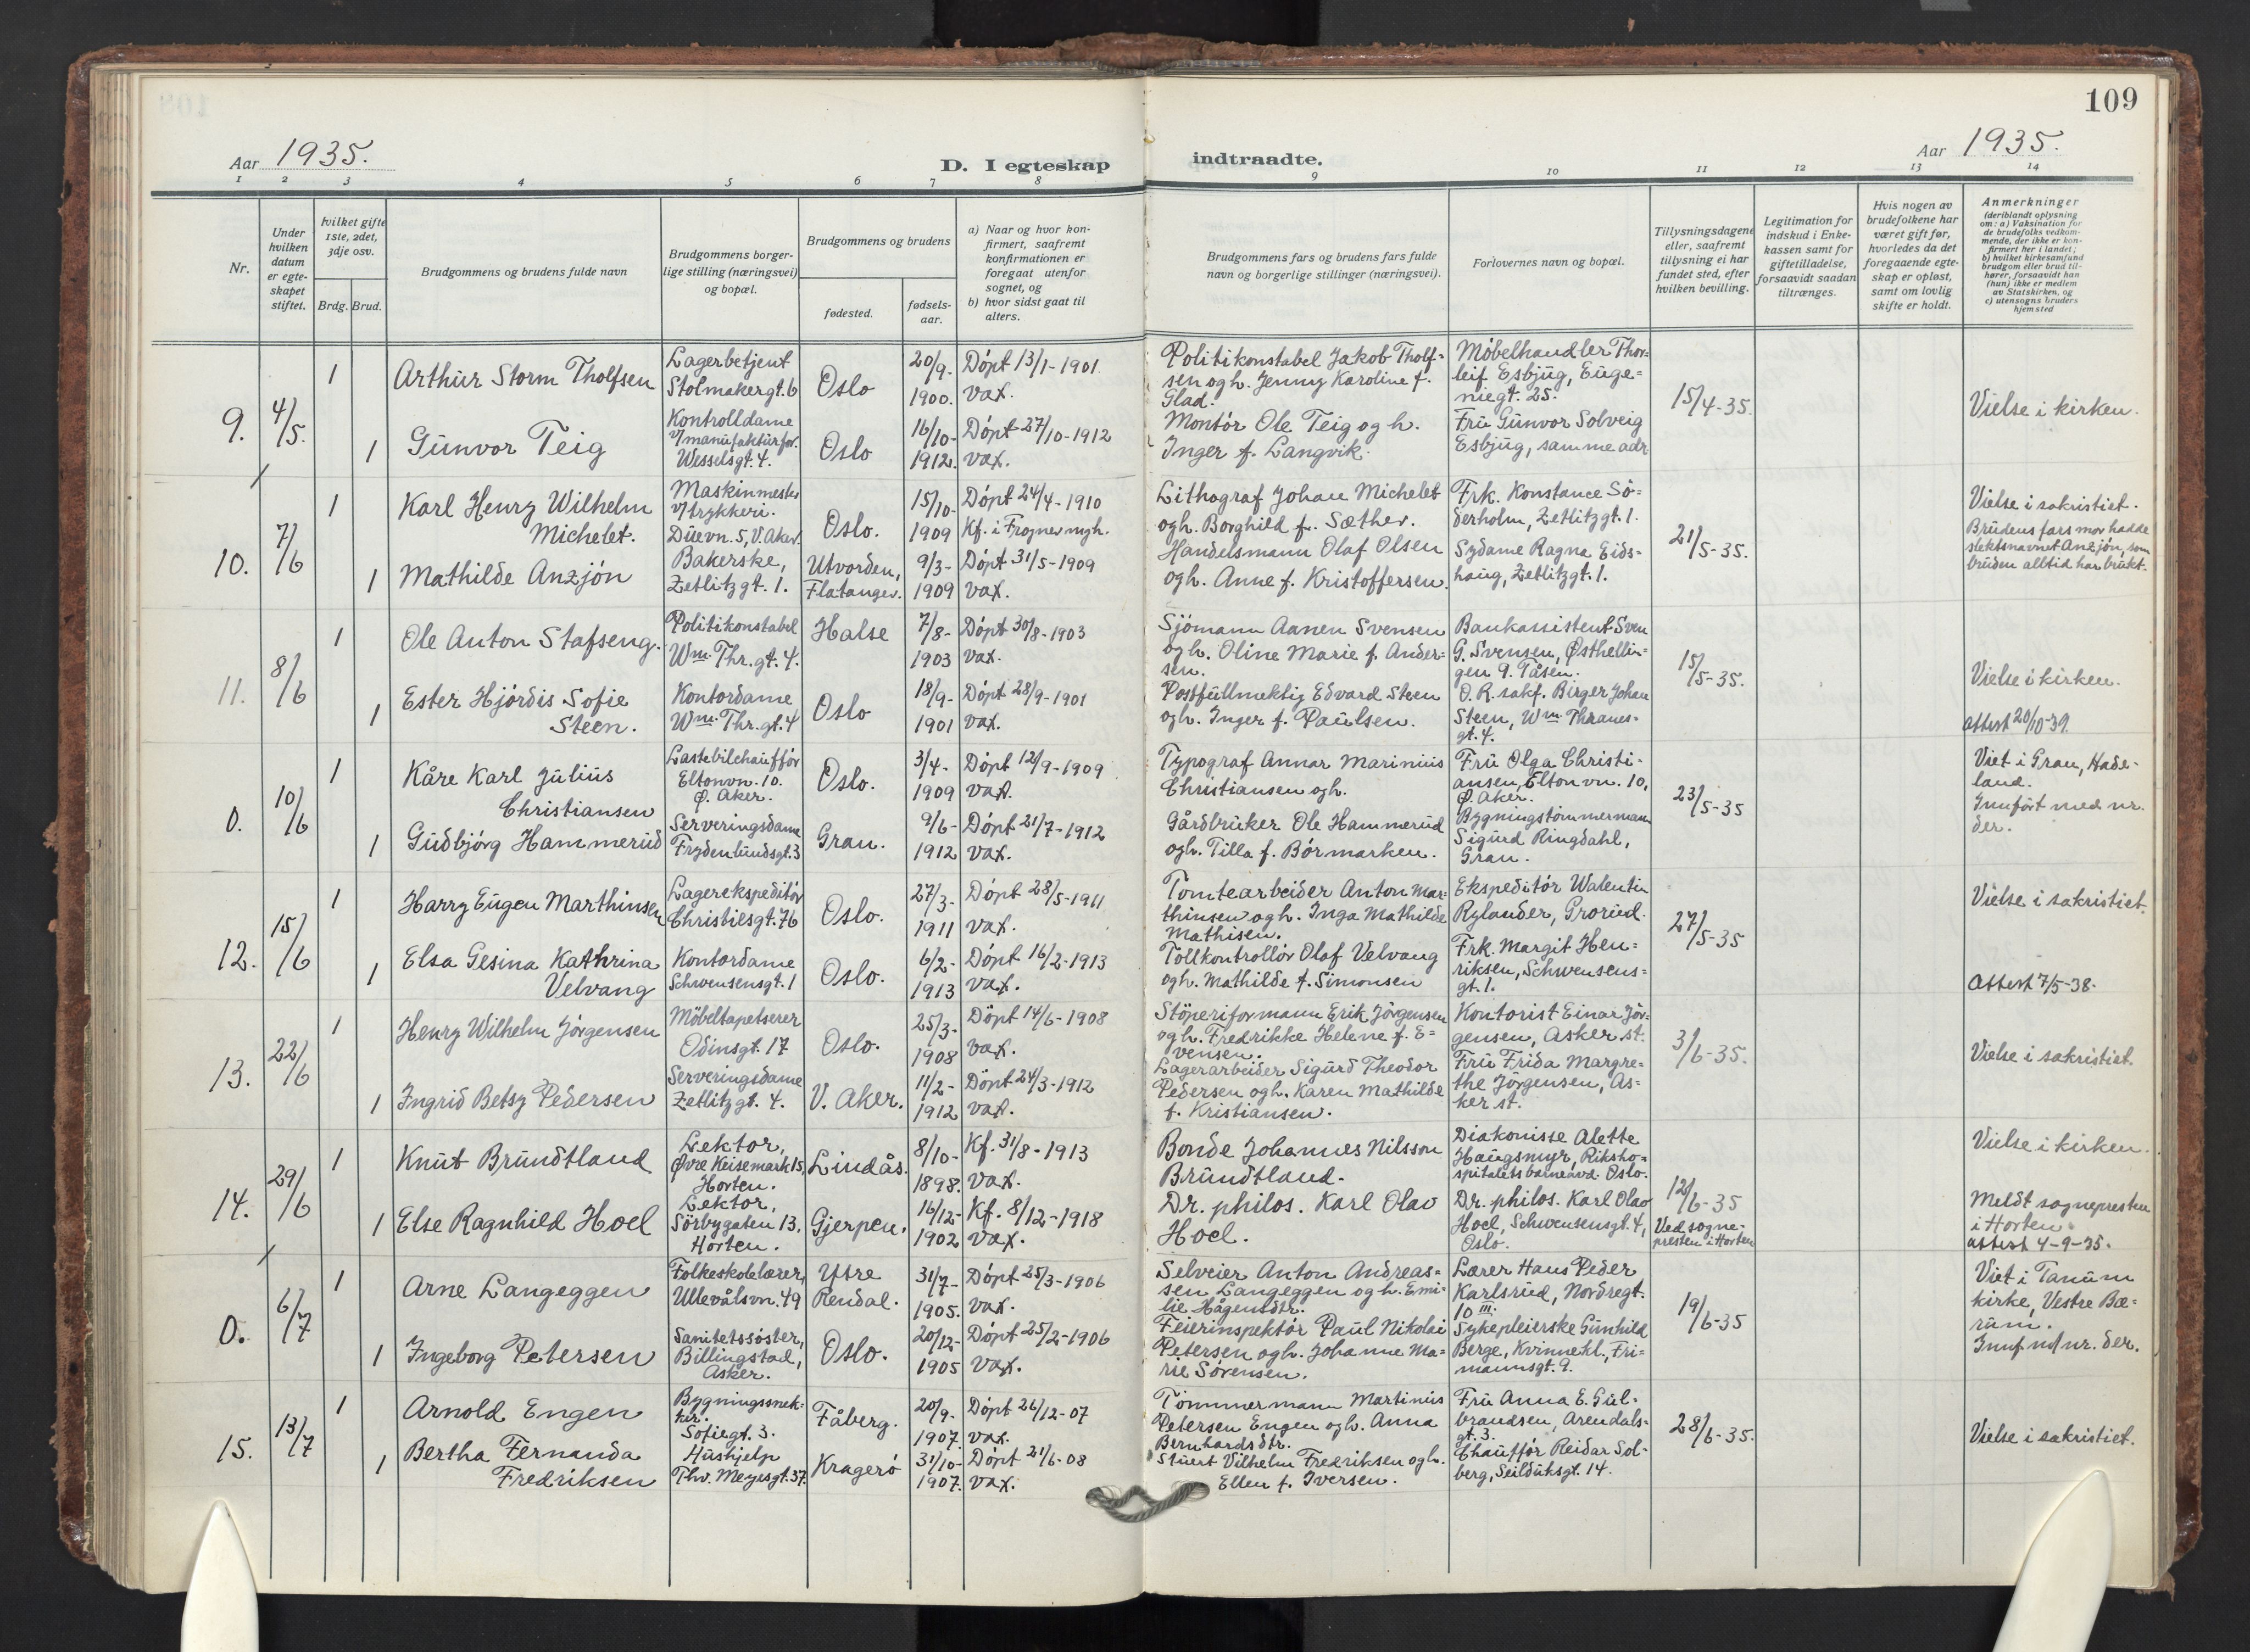 109
Aar 1935.
D. I egteskap indtraadte.
Aar 1935.
1 2 3 4 5 6 7 8 9 10 11 12 13 14
Nr.
Under
hvilken
datum
er egte-
skapet
stiftet.
hvilket gifte
1ste, 2det,
3dje osv.
Brdg. Brud.
Brudgommens og brudens fulde navn
Brudgommens borger-
lige stilling (næringsvei)
og bopæl.
Brudgommens og brudens
fødested.
fødsels-
aar.
a) Naar og hvor kon-
firmert, saafremt
konfirmationen er
foregaat utenfor
sognet, og
b) hvor sidst gaat til
alters.
Brudgommens fars og brudens fars fulde
navn og borgerlige stillinger (næringsvei).
Forlovernes navn og bopæl.
Tillysningsdagene
eller, saafremt
tillysning ei har
fundet sted, efter
hvilken bevilling.
Legitimation for
indskud i Enke-
kassen samt for
giftetilladelse,
forsaavidt saadan
tiltrænges.
Hvis nogen av
brudefolkene har
været gift før,
hvorledes da det
foregaaende egte-
skap er opløst,
samt om lovlig
skifte er holdt.
Anmerkninger
(deriblandt oplysning
om: a) Vaksination for
de brudefolks vedkom-
mende, der ikke er kon-
firmert her i landet;
b) hvilket kirkesamfund
brudgom eller brud til-
hører, forsaavidt han
(hun) ikke er medlem
av Statskirken, og
c) utensogns bruders
hjemsted
9.
4/5.
1
Arthur Storm Tholfsen
Lagerbetjent
Stolmakergt. 6
Oslo
20/9-
1900.
Döpt 13/1-1901.
vax.
Politikonstabel Jakob Tholf=
sen og h. Jenny Karoline f.
Glad.
Möbelhandler Thor=
leif Esbjug, Euge=
niegt. 25.
15/4-35.
Vielse i kirken.
1
Gunvor Teig
Kontrolldame
v/manufakturfor.
Wesselsgt. 4.
Oslo
16/10-
1912.
Döpt 27/10-1912
vax.
Montör Ole Teig og h.
Inger f. Langvik.
Fru Gunvor Solveig
Esbjug, samme adr
10.
7/6
1
Karl Henry Wilhelm
Michelet.
Maskinmester
v/trykkeri.
Duevn. 5, V. Aker.
Oslo.
15/10-
1909
Döpt 24/4-1910
Kf. i Frogner mgh.
Lithograf Johan Michelet
og h. Borghild f. Sæther.
Frk. Konstance Sö=
derholm, Zetlitzgt. 1.
21/5-35.
Vielse i sakristiet.
Brudens fars mor hadde
slektsnavnet Anzjön, som
bruden alltid har brukt.
1
Mathilde Anzjön
Bakerske,
Zetlitzgt. 1.
Utvorden,
Flatanger.
9/3-
1909
Döpt 31/5-1909
vax.
Handelsmann Olaf Olsen
og h. Anne f. Kristoffersen.
Sydame Ragna Eids-
haug, Zetlitzgt. 1.
11.
8/6
1
Ole Anton Stafseng.
Politikonstabel
Wm. Thr. gt. 4.
Halse
7/8-
1903
Döpt 30/8-1903
vax.
Sjömann Aanen Svensen
og h. Oline Marie f. Ander=
sen.
Bankassistent Sven
G. Svensen, Østhellin=
gen 9. Tåsen.
15/5-35.
Vielse i kirken.
attest 20/10-39.
1
Ester Hjördis Sofie
Steen.
Kontordame
Wm. Thr. gt. 4
Oslo
18/9-
1901
Döpt 28/9-1901
vax.
Postfullmektig Edvard Steen
og h. Inger f. Paulsen.
O. R. sakf. Birger Johan
Steen, Wm. Thranes-
gt. 4.
0.
10/6
1
Kåre Karl Julius
Christiansen
Lastebilchafför
Eltonvn. 10.
Ø. Aker.
Oslo.
3/4-
1909
Döpt 12/9-1909
vax.
Typograf Annar Marinius
Christiansen og h.
Fru Olga Christi-
ansen, Eltonvn. 10,
Ø. Aker.
23/5-35
Viet i Gran, Hade-
land.
Innfört med nr.
der.
1
Gudbjörg Hammerud
Serveringsdame
Frydenlundsgt. 3
Gran.
9/6-
1912
Döpt 21/7-1912
vax.
Gårdbruker Ole Hammerud
og h. Tilla f. Börmarken.
Bygningstömmermann
Sigurd Ringdahl,
Gran.
12.
15/6
1
Harry Eugen Marthinsen
Lagerekspeditör
Christiesgt. 76
Oslo.
27/3-
1911
Döpt 28/5-1911
vax.
Tomtearbeider Anton Mar=
thinsen og h. Inga Mathilde
Mathisen.
Ekspeditör Walentin
Rylander, Grorud.
27/5-35
Vielse i sakristiet.
Attest 7/5-38.
1
Elsa Gesina Kathrina
Velvang
Kontordame
Schwensensgt. 1
Oslo.
6/2-
1913
Döpt 16/2-1913
vax.
Tollkontrollör Olaf Velvang
og h. Mathilde f. Simonsen
Frk. Margit Hen=
riksen, Schwensens=
gt. 1.
13.
22/6
1
Henry Wilhelm Jörgensen
Möbeltapetserer
Odinsgt. 17
Oslo.
25/3-
1908
Döpt 14/6-1908
vax.
Störperiformann Erik Jörgensen
og h. Fredrikke Helene f. E=
vensen.
Kontorist Einar Jör=
gensen, Asker st.
3/6-35.
Vielse i sakristiet.
1
Ingrid Betsy Pedersen
Serveringsdame
Zetlitzgt. 4.
V. Aker.
11/2-
1912
Döpt 24/3-1912
vax.
Lagerarbeider Sigurd Theodor
Pedersen og h. Karen Mathilde
f. Kristiansen.
Fru Frida Margre=
the Jörgensen, As=
ker st.
14.
29/6
1
Knut Brundtland
Lektor,
Øvre Keisemark 15,
Horten.
Lindås.
8/10-
1898.
Kf. 31/8-1913
vax.
Bonde Johannes Nilsson
Brundtland.
Diakonisse Alette
Haugsmyr, Riksho=
spitalets barneavd. Oslo.
12/6-35
Ved sogne-
presten i Horten
Vielse i kirken.
Meldt sognepresten
i Horten.
attest 4-9-35.
1
Else Ragnhild Hoel
Lektor,
Sörbygaten 13,
Horten.
Gjerpen.
16/12-
1902
Kf. 8/12-1918
vax.
Dr. philos. Karl Olav
Hoel.
Dr. philos. Karl Olav
Hoel, Schwensensgt. 4,
Oslo.
0.
6/7
1
Arne Langeggen
Folkeskolelærer,
Ullevålsvn. 49
Ytre
Rendal.
31/7-
1905.
Döpt 25/3-1906
vax.
Selveier Anton Andreas=
sen Langeggen og h. Emi=
lie Hågensdtr.
Lærer Hans Peder
Karlsrud, Nordregt.
10 III.
19/6-35
Viet i Tanum
kirke, Vestre Bæ=
rum.
Innf m/ nr. der.
1
Ingeborg Petersen
Sanitetssöster,
Billingstad,
Asker.
Oslo.
20/12-
1905
Döpt 25/2-1906
vax.
Feierinspektör Paul Nikolai
Petersen og h. Johanne Ma=
rie Sörensen.
Sykepleierske Gunhild
Berge, Kvinnekl., Fri=
mannsgt. 9.
15.
13/7
1
Arnold Engen
Bygningssnek-
ker.
Sofiegt. 3.
Fåberg.
20/9-
1907.
Döpt 26/12-07
vax.
Tömmermann Martinius
Petersen Engen og h. Anna
Bernhardsdtr.
Fru Anna E. Gul=
brandsen, Arendals=
gt. 3.
28/6-35.
Vielse i sakristiet.
1
Bertha Fernanda
Fredriksen
Hushjelp
Thv. Meyesgt. 37.
Kragerö
31/10-
1907.
Döpt 21/6-08
vax.
Stuert Vilhelm Fredriksen og h.
Ellen f. Iversen.
Chaufför Reidar Sol-
berg, Seilduksgt. 14.